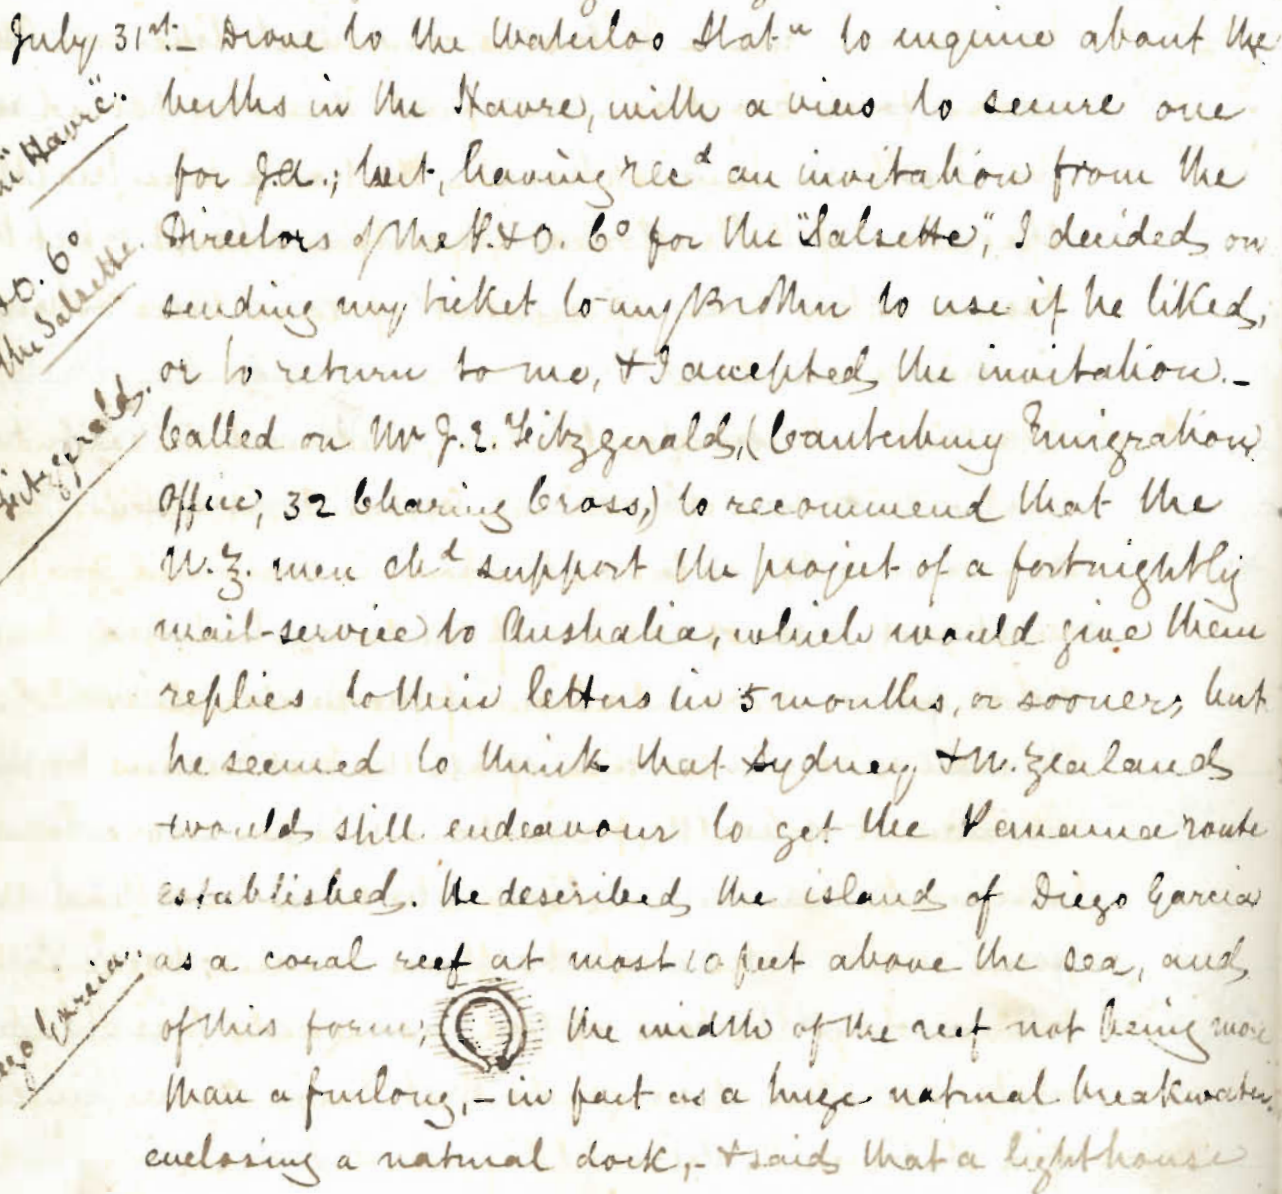 July 31st_ Drove to the Waterloo Statn to enquire about the
berths in the Havre, with a view to secure one
for J.A.; but, having recd an invitation from the
Directors of the P. & O. Co for the "Salsette", I decided on
sending my ticket to my Brother to use if he liked,
or to return to me, & I accepted the invitation._
Called on Mr J. E. Fitzgerald, (Canterbury Emigration
Office, 32 Charing Cross,) to recommend that the
N.Z. men shd support the project of a fortnightly
mail-service to Australia, which would give them
replies to their letters in 5 months, or sooner; but
he seemed to think that Sydney & N. Zealand
would still endeavour to get the Panama route
established. He described the island of Diego Garcia
as a coral reef at most 10 feet above the sea, and
of this form; the width of the reef not being more
than a furlong,- in fact as a huge natural breakwater
enclosing a natural dock,- & said that a lighthouse
"Havre".
& O. Co
the Salsette.
Fitzgerald.
Garcia.